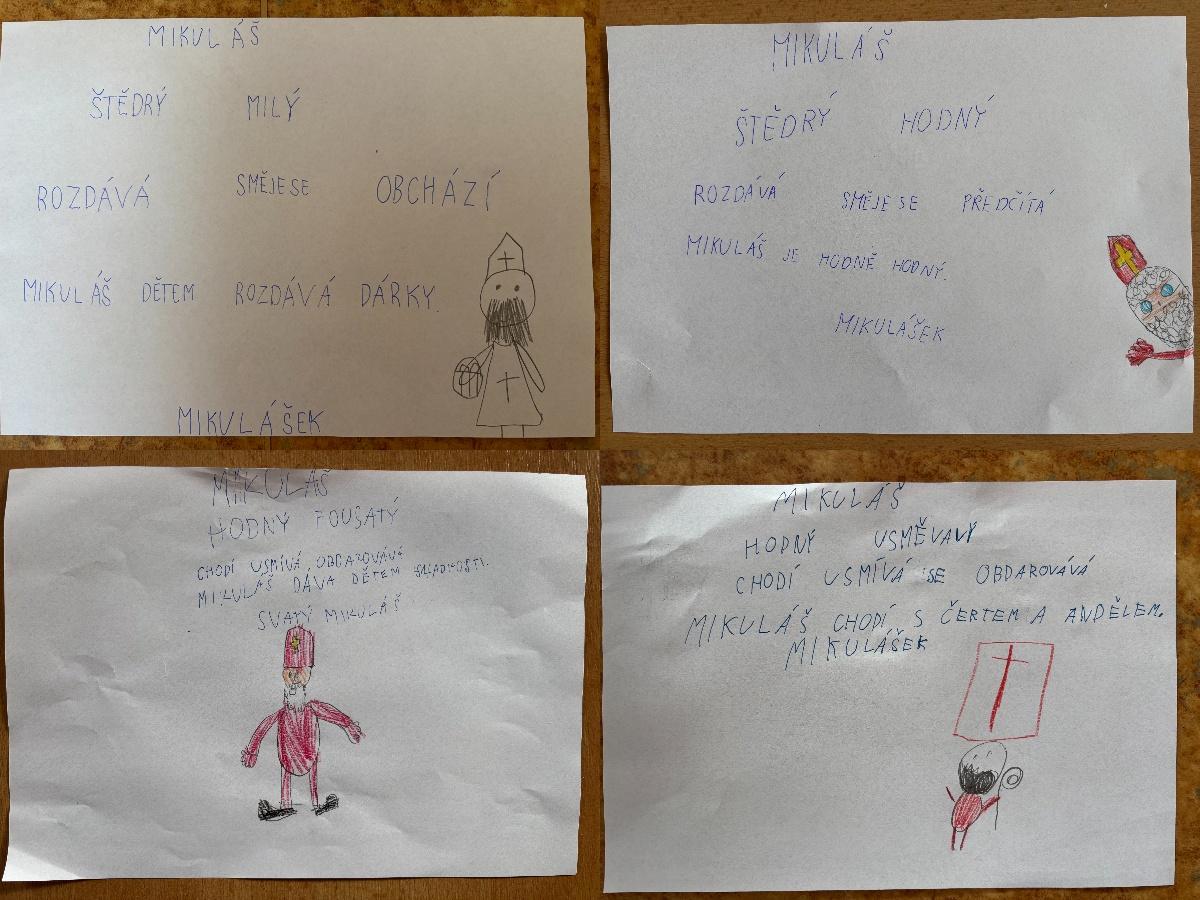 MIKULÁŠ
ŠTĚDRÝ MILÝ
ROZDÁVÁ SMĚJE SE OBCHÁZÍ
MIKULÁŠ DĚTEM ROZDÁVÁ DÁRKY.
MIKULÁŠEK
MIKULÁŠ
ŠTĚDRÝ HODNÝ
ROZDÁVÁ SMĚJE SE PŘEDČÍTÁ
MIKULÁŠ JE HODNĚ HODNÝ.
MIKULÁŠEK
MIKULÁŠ
HODNÝ FOUSATÝ
CHODÍ USMÍVÁ, OBDAROVÁVÁ
MIKULÁŠ DÁVA DĚTEM SLADKOSTI.
SVATÝ MIKULÁŠ
MIKULÁŠ
HODNÝ USMĚVAVÝ
CHODÍ USMÍVÁ SE OBDAROVÁVÁ
MIKULÁŠ CHODÍ S ČERTEM A ANDĚLEM.
MIKULÁŠEK